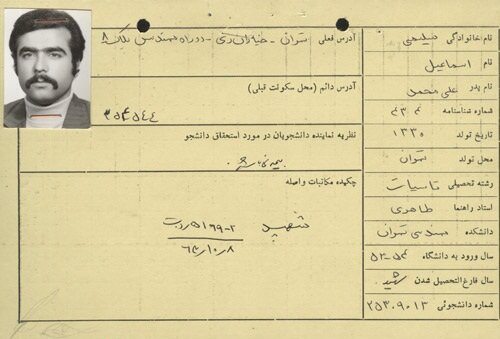 نام خانوادگی
نام اسماعیل
نام پدر علی محمد
شماره شناسنامه ۴۳۴
تاریخ تولد ۱۳۳۰
محل تولد تهران
رشته تحصیلی تاسیسات
استاد راهنما طاهری
دانشکده مهندسی تهران
سال ورود به دانشگاه ۵۴-۵۳
سال فارغ التحصیل شدن شهید
شماره دانشجوئی ۲۵۳۰۹۰۱۳
آدرس فعلی تهران - خیابان ری - پلاک ۸
آدرس دائم (محل سکونت قبلی)
۳۵۴۵۴۴
نظریه نماینده دانشجویان در مورد استحقاق دانشجو
چکیده مکاتبات واصله
شهید